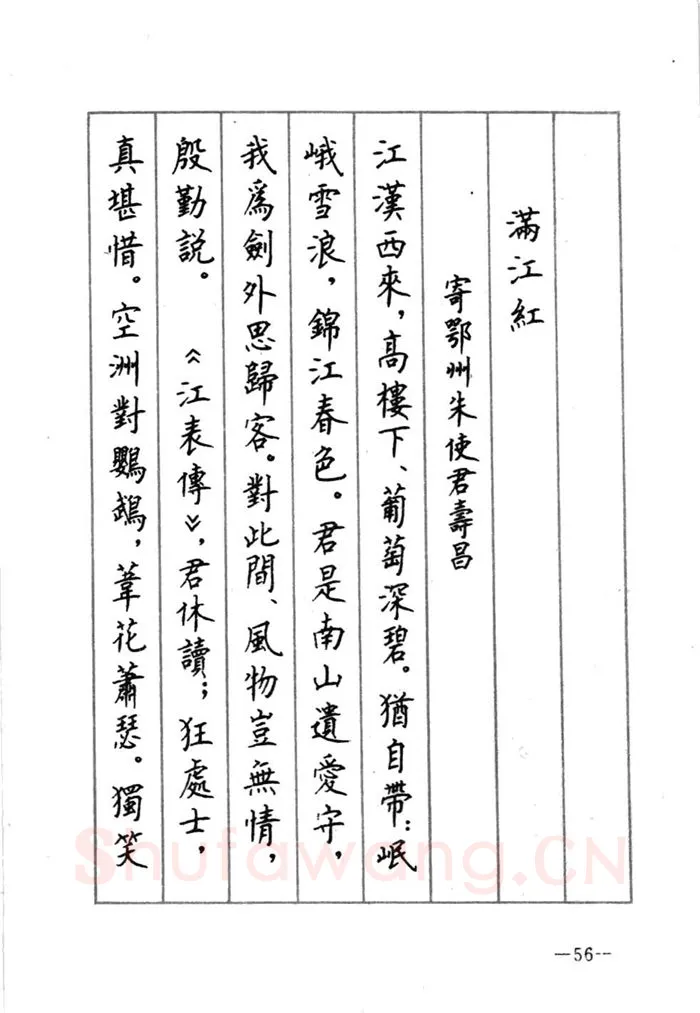 滿江紅
寄鄂州朱使君壽昌
江漢西來，高樓下、葡萄深碧。猶自帶：岷
峨雪浪，錦江春色。君是南山遺愛守，
我爲劍外思歸客。對此間、風物豈無情，
殷勤説。　《江表傳》，君休讀；狂處士，
真堪惜。空洲對鸚鵡，葦花蕭瑟。獨笑
Shufawang.CN
—56--